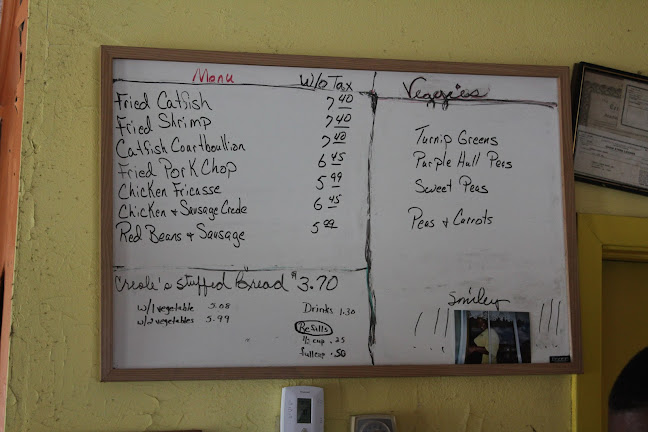 Menu W/o Tax
Fried Catfish 7 40
Fried Shrimp 7 40
Catfish Courtboullion 7 40
Fried Pork Chop 6 45
Chicken Fricasse 5 99
Chicken & Sausage Creole 6 45
Red Beans & Sausage 5 99
Creole's stuffed bread $3.70
w/1 vegetable 5.08
w/2 vegetables 5.99
Drinks 1.30
Refills
1/2 cup .25
full cup .50
Veggies
Turnip Greens
Purple Hull Peas
Sweet Peas
Peas & Carrots
Smiley